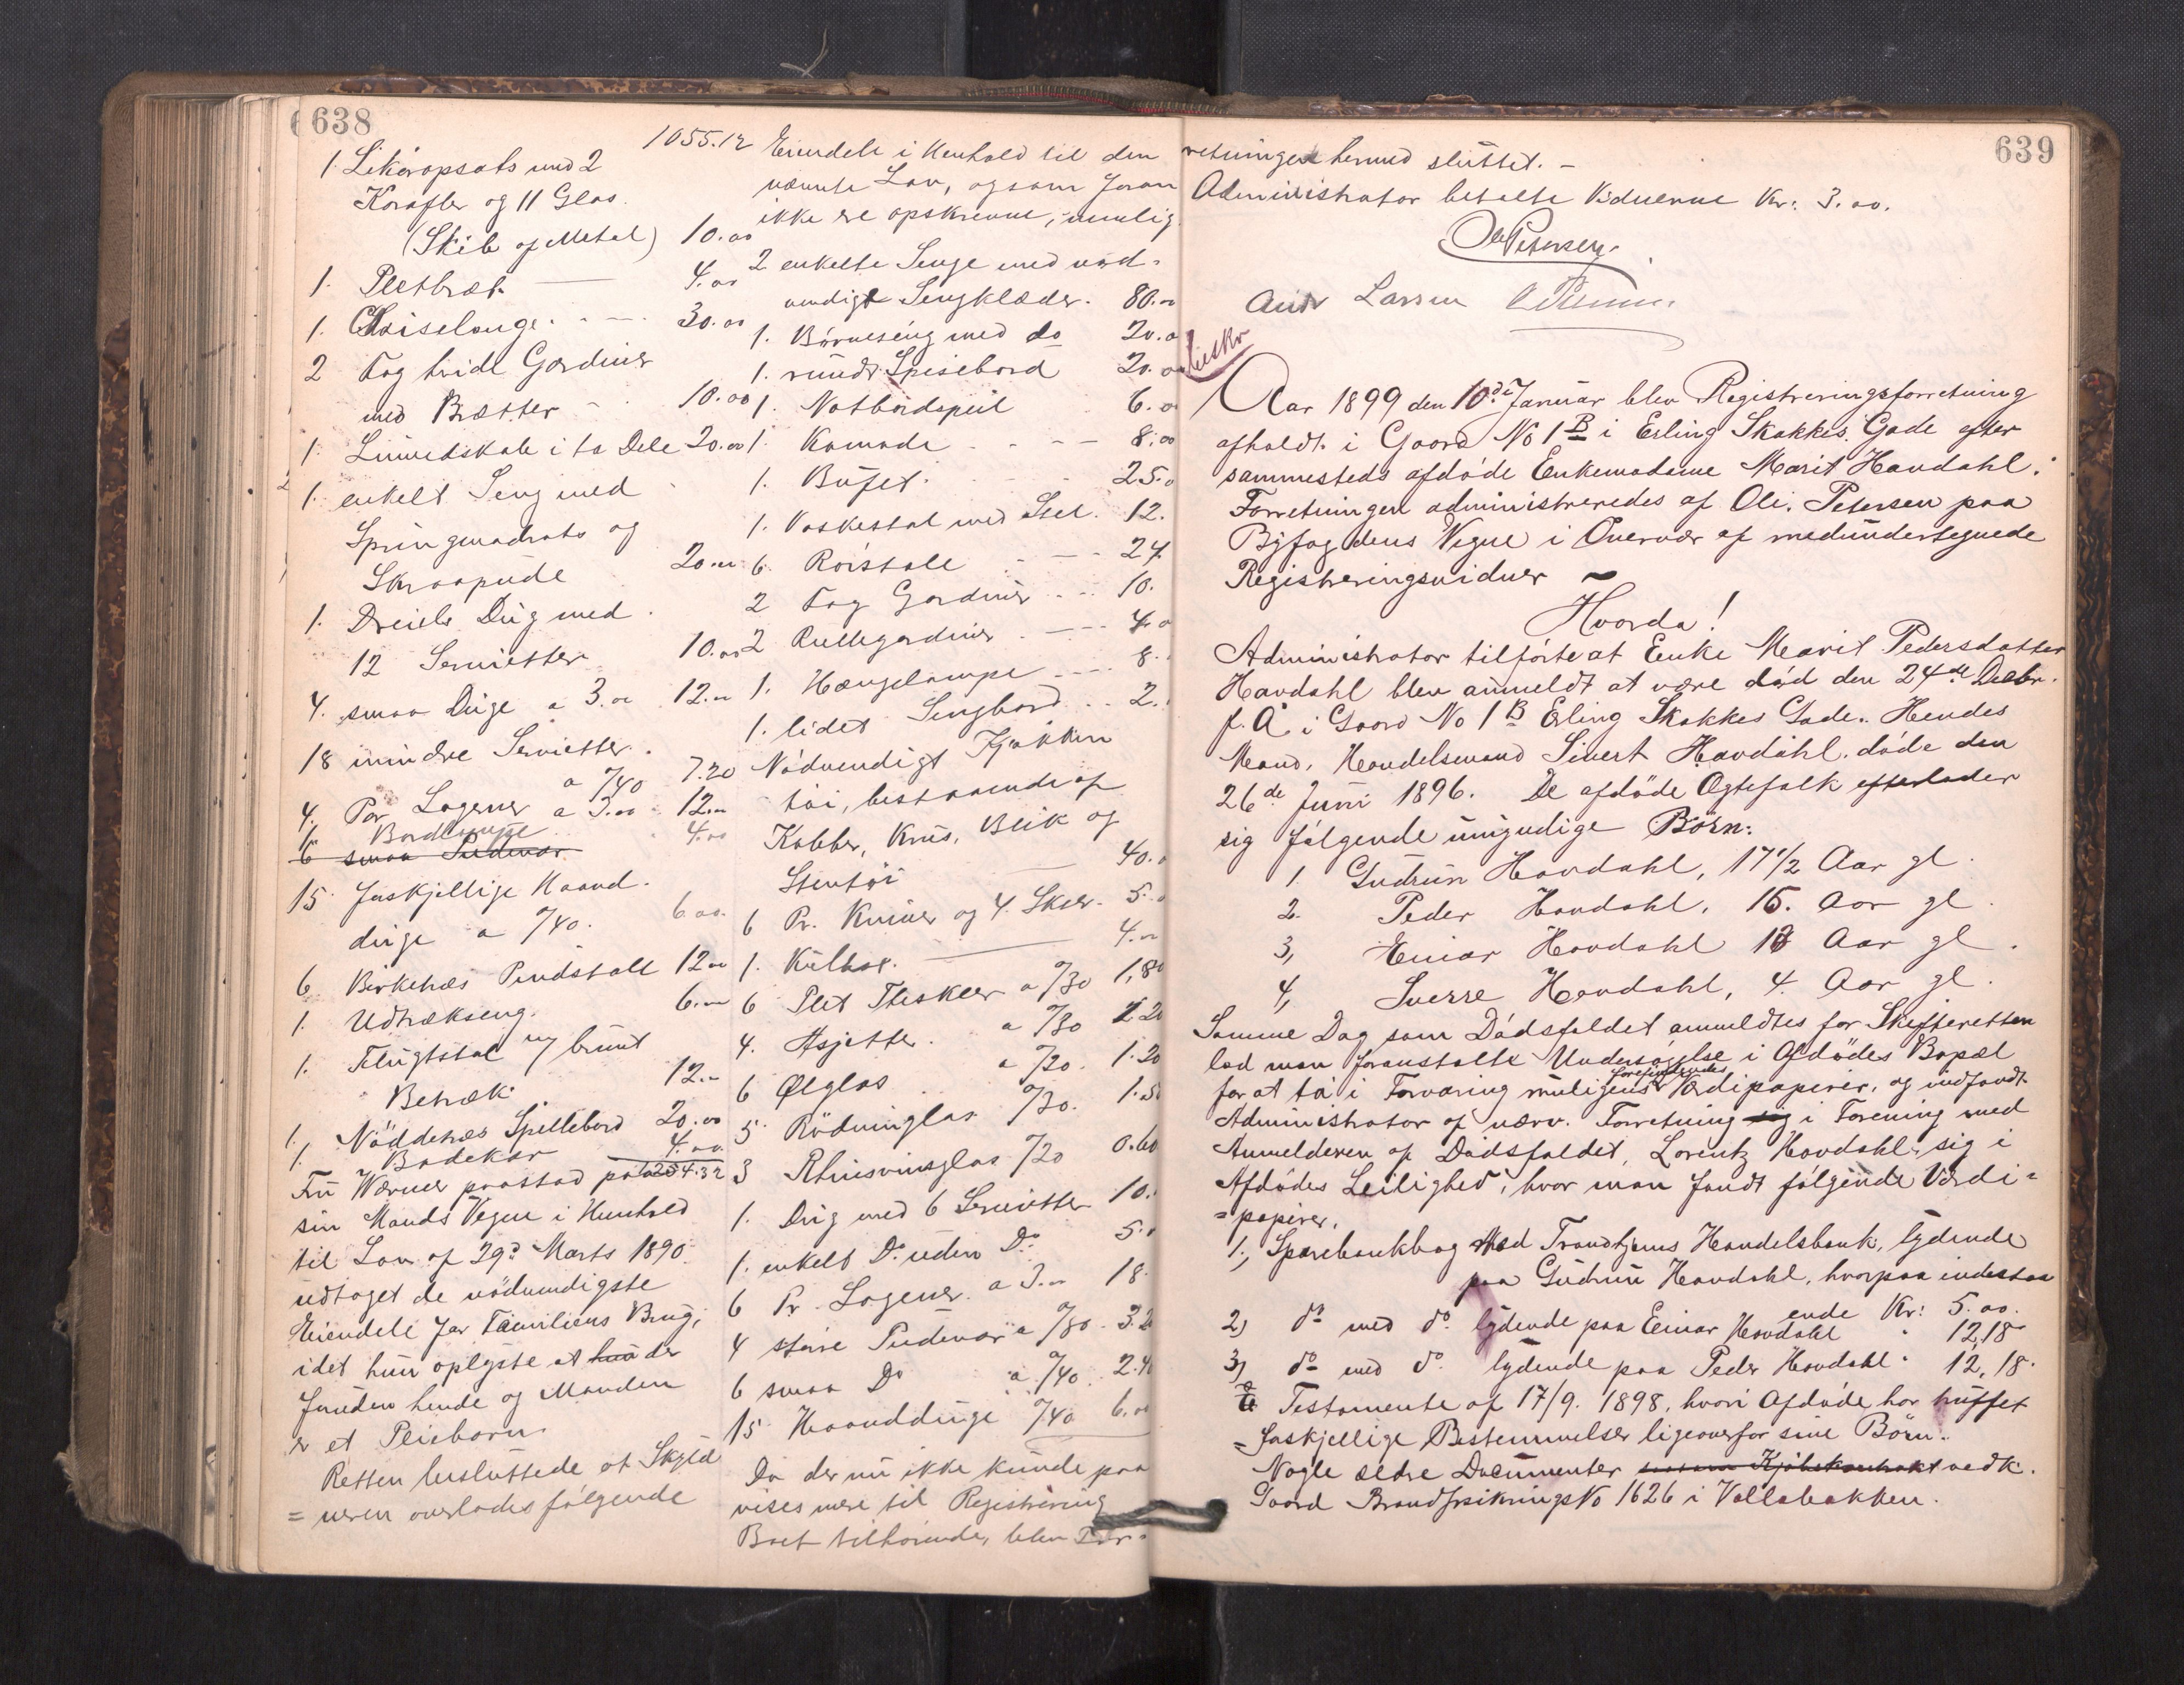 638
1055.12
1. Likøropsats med 2
Karafler og 11 Glas.
(Skib af Metal) 10.00
1. Pletbræt 4.00
1. Chaiselonge. 30.00
2 Fag hvide Gardiner
med Brætter 10.00
1. Linnedskab i to Dele 20.00
1. enkelt Seng med
Springmadrats og
Skraapude 20.00
1. Dreiels Dug med
12 Servietter 10.00
4. smaa Duge a 3.00 12.00
18 mindre Servietter.
a %40 7.20
4. Par Lagener a 3.00 12.00
1. Bordlampe 4.00
6 smaa Pudevar
15. forskjellige Haand-
duge a %40. 6.00.
6. Birketræs Pindstole 12.00
1. Udtrækseng. 6.00
1. Flugtstol m/ brunt
Betræk 12.00
1. Nøddetræs Spillebord 20.00
1. Badekar 4.00.
1254.32
Fru Wærner paastod paa
sin Mands Vegne i Henhold
til Lov af 29de Marts 1890
udtaget de nødvendigste
Eiendele for Familiens Brug,
idet hun oplyste at hun der
foruden hende og Manden
er et Pleiebarn.
Retten besluttede at Skyld
=neren overlodes følgende
Eiendele i Henhold til den
nævnte Lov, og som foran
ikke ere opskrevne, nemlig
2 enkelte Senge med nød-
vendige Sengklæder. 80.00
1. Børneseng med do 20.0
1. rundt Spisebord 20.0
1. Natbordspeil 6.0
1. Komode 8.00
1. Bufet. 25.0
1. Vaskestol med Stel. 12.
6. Rørstole 24.
2 Fag Gardiner 10.
2 Rullegardiner 4.0
1. Hængelampe 8.
1. lidet Sengbord 2.
Nødvendigt Kjøkken
tøi, bestaaende af
Kobber, Krus, Blik og
Stentøi 40.0
6 Pr. Knive og 4. Skeer. 5.0
1. 4.00
6 Plet Theskeer a %30 1,80
4. Asjetter. a %80 2.20
6 Ølglas a %20. 1.20
5. Rødvinglas %30. 1.50
3 Rhinsvinsglas %20 0.60
1. Dug med 6 Servietter 10.
1. enkelt Do. uden Do. 5.0
6 Pr. Lagener a 3.00 18.
4 større Pudevar a %80 3.20
6 smaa Do a %40 2.40
15. Haandduge %40 6.00
Da der nu ikke kunde paa
vises mere til Registrering
Boet tilhørende, blev For=
639
retningen hermed sluttet. –
Administrator betalte Vidnerne Kr: 3.00.
Ole Petersen.
Andr Larsen
beskr
Aar 1899 den 10de Januar blev Registreringsforretning
afholdt i Gaard No 1B i Erling Skakkes Gade efter
sammesteds afdøde Enkemadame Marit Havdahl.
Forretningen administreredes af Ole Petersen paa
Byfogdens Vegne i Overvær af medundertegnede
Registreringsvidner ~
Hvorda!
Administrator tilførte at Enke Marit Pedersdatter
Havdahl blev anmeldt at være død den 24de Decbr.
f. A. i Gaard No 1B Erling Skakkes Gade. Hendes
Mand, Handelsmand Sivert Havdahl døde den
26de Juni 1896. De afdøde Ægtefolk efterlader
sig følgende umyndige Børn:
1. Gudrun Havdahl, 17 1/2 Aar gl.
2. Peder Havdahl, 15. Aar gl.
3, Einar Havdahl 13 Aar gl.
4, Sverre Havdahl, 4. Aar gl.
Samme Dag som Dødsfaldet anmeldtes for Skifteretten
lod man foranstalte Undersøgelse i Afdødes Bopæl
forefindendes
for at ta i Forvaring muligens Værdipapirer, og indfandt
Administrator af nærv. Forretning sig i Forening med
Anmelderen af Dødsfaldet, Lorentz Havdahl, sig i
Afdødes Leilighed, hvor man fandt følgende Værdi=
=papirer.
1., Sparebankbog med Trondhjems Handelsbank, lydende
paa Gudrun Havdahl, hvorpaa indestaa
ende Kr: 5.00.
2) do med do. lydende paa Einar Havdahl " 12,18
3) do med do. lydende paa Peder Havdahl " 12,18.
Testamente af 17/9. 1898, hvori Afdøde har truffet
=forskjellige Bestemmelser ligeoverfor sine Børn.
Nogle ældre Documenter saasom Kjøbekontrakt vedk.
Gaard BrandfrsikringsNo 1626 i Vollabakken.